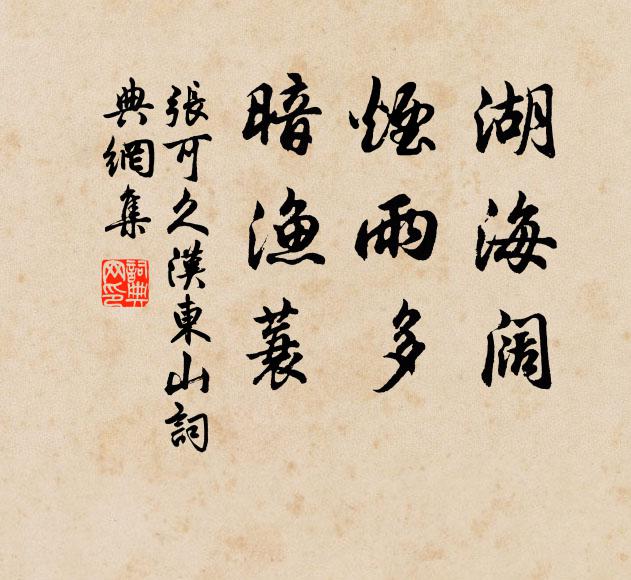 湖海阔
煙雨多
暗漁蓑
張可久漢東山詞
典網集
詞典
网印